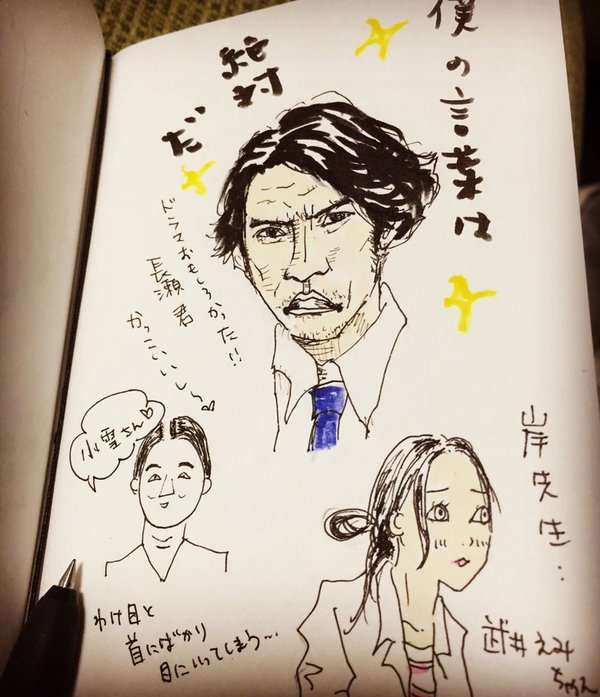 僕の言葉は
絶対
だ
ドラマおもしろかった!!
長瀬君
かっこいいしぃ〜
小雪さん
岸先生…
武井えみ
ちゃん
わけ目と
首にばかり
目にいってしまう…